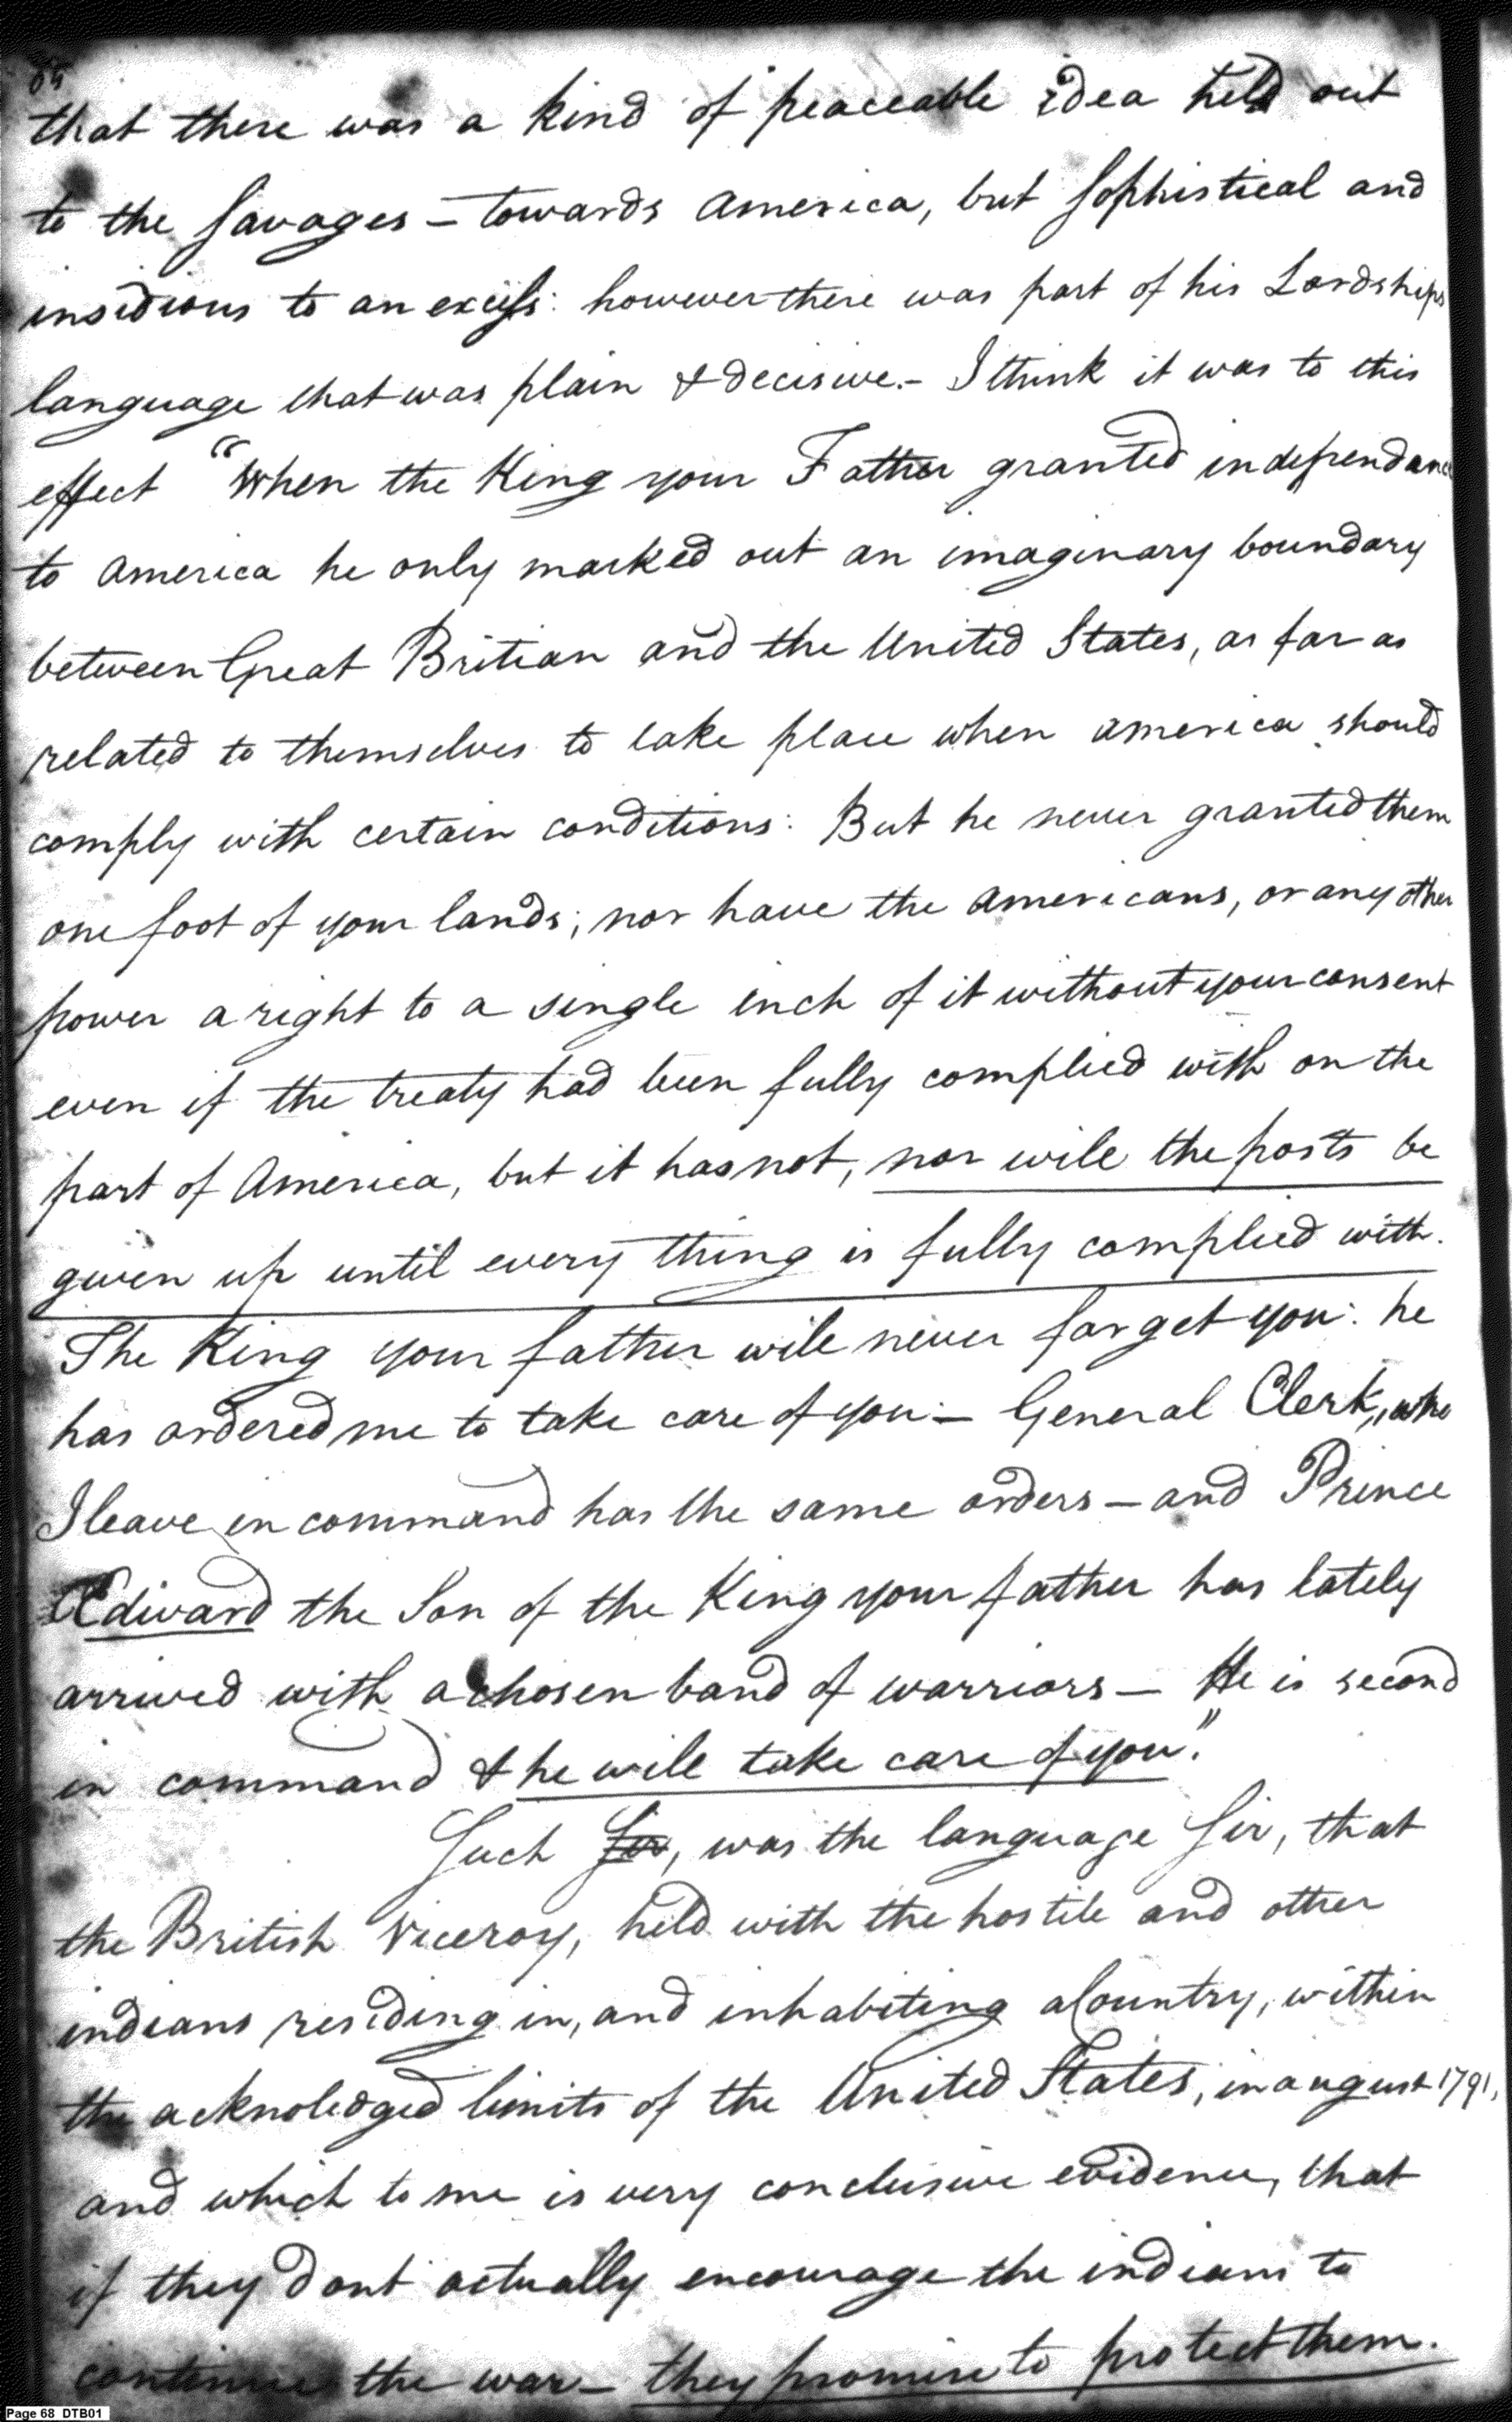 that there was a kind of peaceable idea held out
to the Savages - towards America, but Sophistical and
insidious to an excess: however there was part of his Lordships
language that was plain & decisive. - I think it was to this
effect "When the King your Father granted independance
to America he only marked out an imaginary boundary
between Great Britian and the United States, as far as
related to themselves to take place when America should
comply with certain conditions: But he never granted them
one foot of your lands; nor have the Americans, or any other
power a right to a single inch of it without your consent
even if the treaty had been fully complied with on the
part of America, but it has not, nor will the posts be
given up until every thing is fully complied with.
The King your father will never forget you: he
has ordered me to take care of you - General Clerk, who
I leave in command has the same orders - and Prince
Edward the Son of the King your father has lately
arrived with a chosen band of warriors - He is second
in command & he will take care of you."
Such Sir, was the language Sir, that
the British Viceroy, held with the hostile and other
indians residing in, and inhabiting a Country, within
the acknoledged limits of the United States, in august 1791,
and which to me is very conclusive evidence, that
if they dont actually encourage the indians to
continue the war - they promise to protect them.
Page 68 DTB01